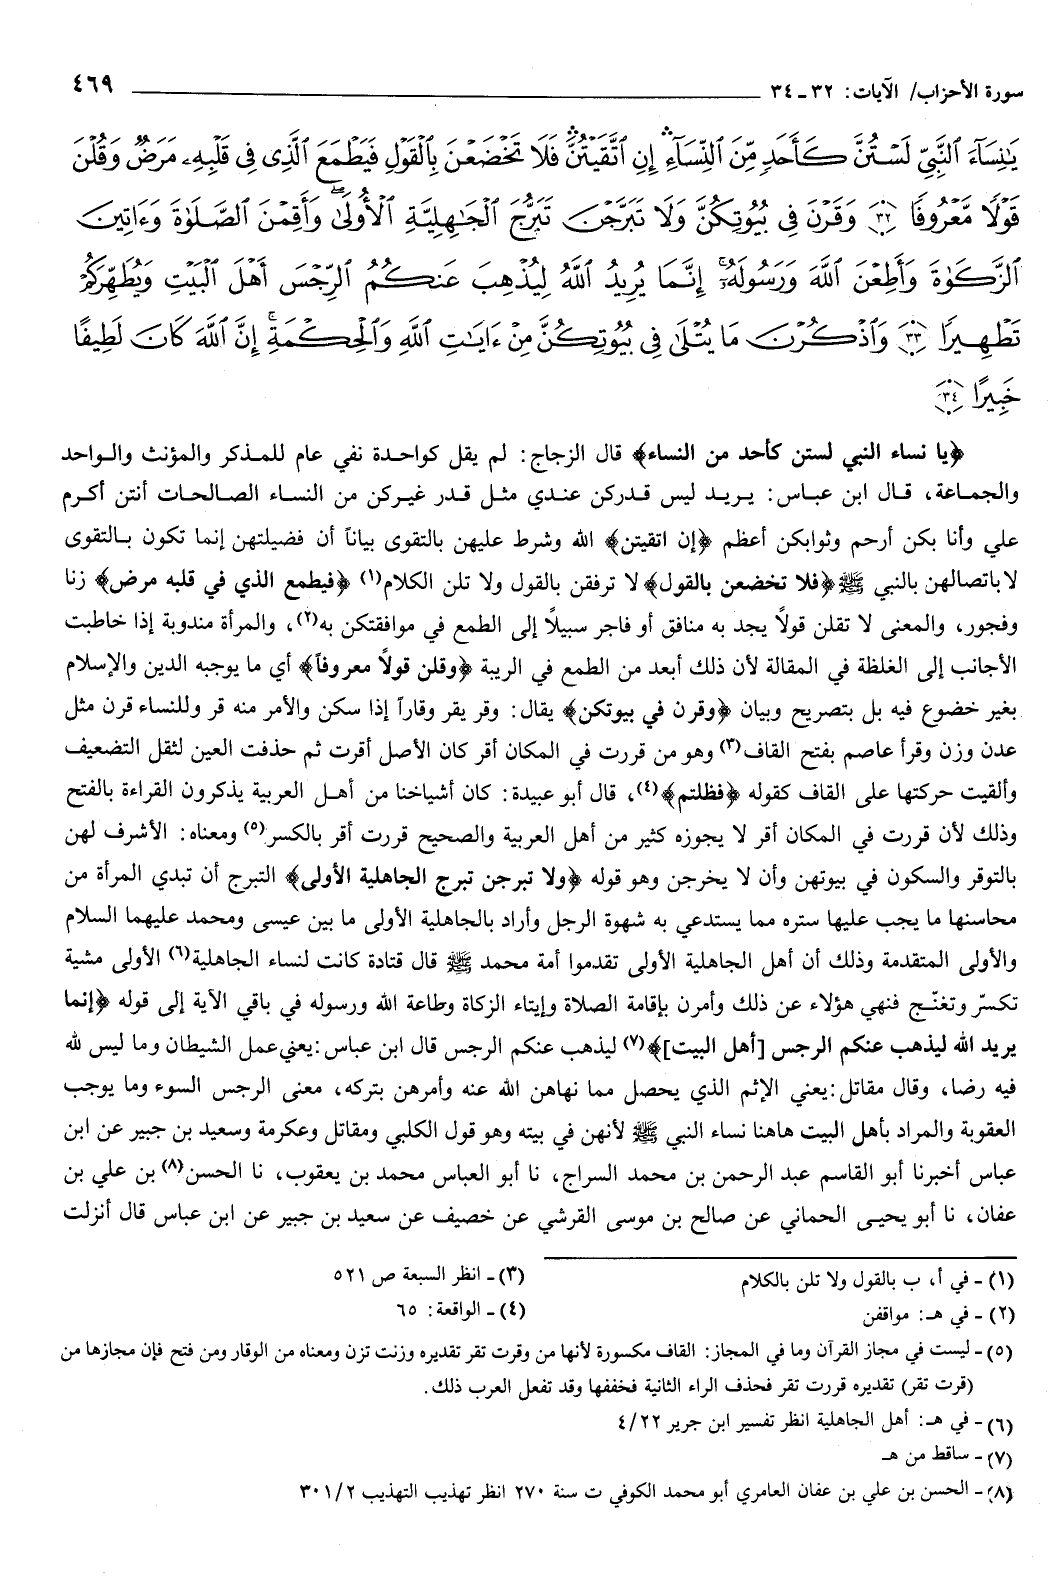 سورة الأحزاب/ الآيات: ٣٢ ـ ٣٤ ٤٦٩
يَٰنِسَآءَ ٱلنَّبِيِّ لَسْتُنَّ كَأَحَدٍ مِّنَ ٱلنِّسَآءِ إِنِ ٱتَّقَيْتُنَّ فَلَا تَخْضَعْنَ بِٱلْقَوْلِ فَيَطْمَعَ ٱلَّذِى فِى قَلْبِهِۦ مَرَضٌ وَقُلْنَ
قَوْلًا مَّعْرُوفًا ٣٢ وَقَرْنَ فِى بُيُوتِكُنَّ وَلَا تَبَرَّجْنَ تَبَرُّجَ ٱلْجَٰهِلِيَّةِ ٱلْأُولَىٰ وَأَقِمْنَ ٱلصَّلَوٰةَ وَءَاتِينَ
ٱلزَّكَوٰةَ وَأَطِعْنَ ٱللَّهَ وَرَسُولَهُۥٓ إِنَّمَا يُرِيدُ ٱللَّهُ لِيُذْهِبَ عَنكُمُ ٱلرِّجْسَ أَهْلَ ٱلْبَيْتِ وَيُطَهِّرَكُمْ
تَطْهِيرًا ٣٣ وَٱذْكُرْنَ مَا يُتْلَىٰ فِى بُيُوتِكُنَّ مِنْ ءَايَٰتِ ٱللَّهِ وَٱلْحِكْمَةِ إِنَّ ٱللَّهَ كَانَ لَطِيفًا
خَبِيرًا ٣٤
﴿يا نساء النبي لستن كأحد من النساء﴾ قال الزجاج: لم يقل كواحدة نفي عام للمذكر والمؤنث والواحد
والجماعة، قال ابن عباس: يريد ليس قدركن عندي مثل قدر غيركن من النساء الصالحات أنتن أكرم
علي وأنا بكن أرحم وثوابكن أعظم ﴿إن اتقيتن﴾ الله وشرط عليهن بالتقوى بياناً أن فضيلتهن إنما تكون بالتقوى
لا باتصالهن بالنبي ﷺ ﴿فلا تخضعن بالقول﴾ لا ترفقن بالقول ولا تلن الكلام(١) ﴿فيطمع الذي في قلبه مرض﴾ زنا
وفجور، والمعنى لا تقلن قولاً يجد به منافق أو فاجر سبيلاً إلى الطمع في موافقتكن به(٢)، والمرأة مندوبة إذا خاطبت
الأجانب إلى الغلظة في المقالة لأن ذلك أبعد من الطمع في الريبة ﴿وقلن قولاً معروفاً﴾ أي ما يوجبه الدين والإسلام
بغير خضوع فيه بل بتصريح وبيان ﴿وقرن في بيوتكن﴾ يقال: وقر يقر وقاراً إذا سكن والأمر منه قر وللنساء قرن مثل
عدن وزن وقرأ عاصم بفتح القاف(٣) وهو من قررت في المكان أقر كان الأصل أقرت ثم حذفت العين لثقل التضعيف
وألقيت حركتها على القاف كقوله ﴿فظلتم﴾(٤)، قال أبو عبيدة: كان أشياخنا من أهل العربية يذكرون القراءة بالفتح
وذلك لأن قررت في المكان أقر لا يجوزه كثير من أهل العربية والصحيح قررت أقر بالكسر(٥) ومعناه: الأشرف لهن
بالتوقر والسكون في بيوتهن وأن لا يخرجن وهو قوله ﴿ولا تبرجن تبرج الجاهلية الأولى﴾ التبرج أن تبدي المرأة من
محاسنها ما يجب عليها ستره مما يستدعي به شهوة الرجل وأراد بالجاهلية الأولى ما بين عيسى ومحمد عليهما السلام
والأولى المتقدمة وذلك أن أهل الجاهلية الأولى تقدموا أمة محمد ﷺ قال قتادة كانت لنساء الجاهلية(٦) الأولى مشية
تكسّر وتغنّج فنهي هؤلاء عن ذلك وأمرن بإقامة الصلاة وإيتاء الزكاة وطاعة الله ورسوله في باقي الآية إلى قوله ﴿إنما
يريد الله ليذهب عنكم الرجس [أهل البيت]﴾(٧) ليذهب عنكم الرجس قال ابن عباس :يعني عمل الشيطان وما ليس لله
فيه رضا، وقال مقاتل:يعني الإثم الذي يحصل مما نهاهن الله عنه وأمرهن بتركه، معنى الرجس السوء وما يوجب
العقوبة والمراد بأهل البيت هاهنا نساء النبي ﷺ لأنهن في بيته وهو قول الكلبي ومقاتل وعكرمة وسعيد بن جبير عن ابن
عباس أخبرنا أبو القاسم عبد الرحمن بن محمد السراج، نا أبو العباس محمد بن يعقوب، نا الحسن(٨) بن علي بن
عفان، نا أبو يحيى الحماني عن صالح بن موسى القرشي عن خصيف عن سعيد بن جبير عن ابن عباس قال أنزلت
(١) ـ في أ، ب بالقول ولا تلن بالكلام
(٢) ـ في هـ: مواقفن
(٣) ـ انظر السبعة ص ٥٢١
(٤) ـ الواقعة: ٦٥
(٥) ـ ليست في مجاز القرآن وما في المجاز: القاف مكسورة لأنها من وقرت تقر تقديره وزنت تزن ومعناه من الوقار ومن فتح فإن مجازها من
(قرت تقر) تقديره قررت تقر فحذف الراء الثانية فخففها وقد تفعل العرب ذلك.
(٦) ـ في هـ: أهل الجاهلية انظر تفسير ابن جرير ٤/٢٢
(٧) ـ ساقط من هـ
(٨) ـ الحسن بن علي بن عفان العامري أبو محمد الكوفي ت سنة ٢٧٠ انظر تهذيب التهذيب ٣٠١/٢